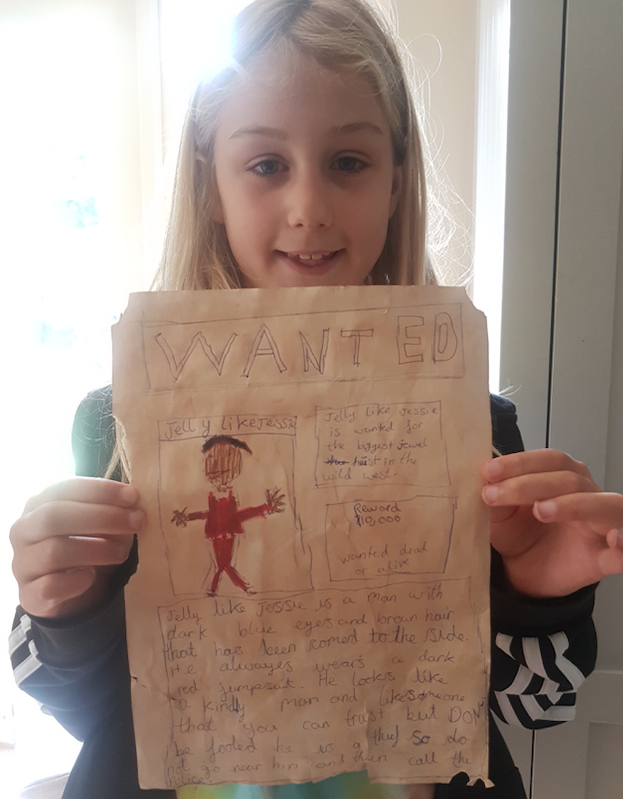 WANTED
Jelly like Jessie
Jelly like Jessie
is wanted for
the biggest jewel
heist in the
wild west.
Reward
$10,000
wanted dead
or alive
Jelly like Jessie is a man with
dark blue eyes and brown hair
that has been comed to the side.
He always wears a dark
red jumpsuit. He looks like
a kind man and like someone
that you can trust but DON'T
be fooled he is a thief so do
not go near him and then call the
police.